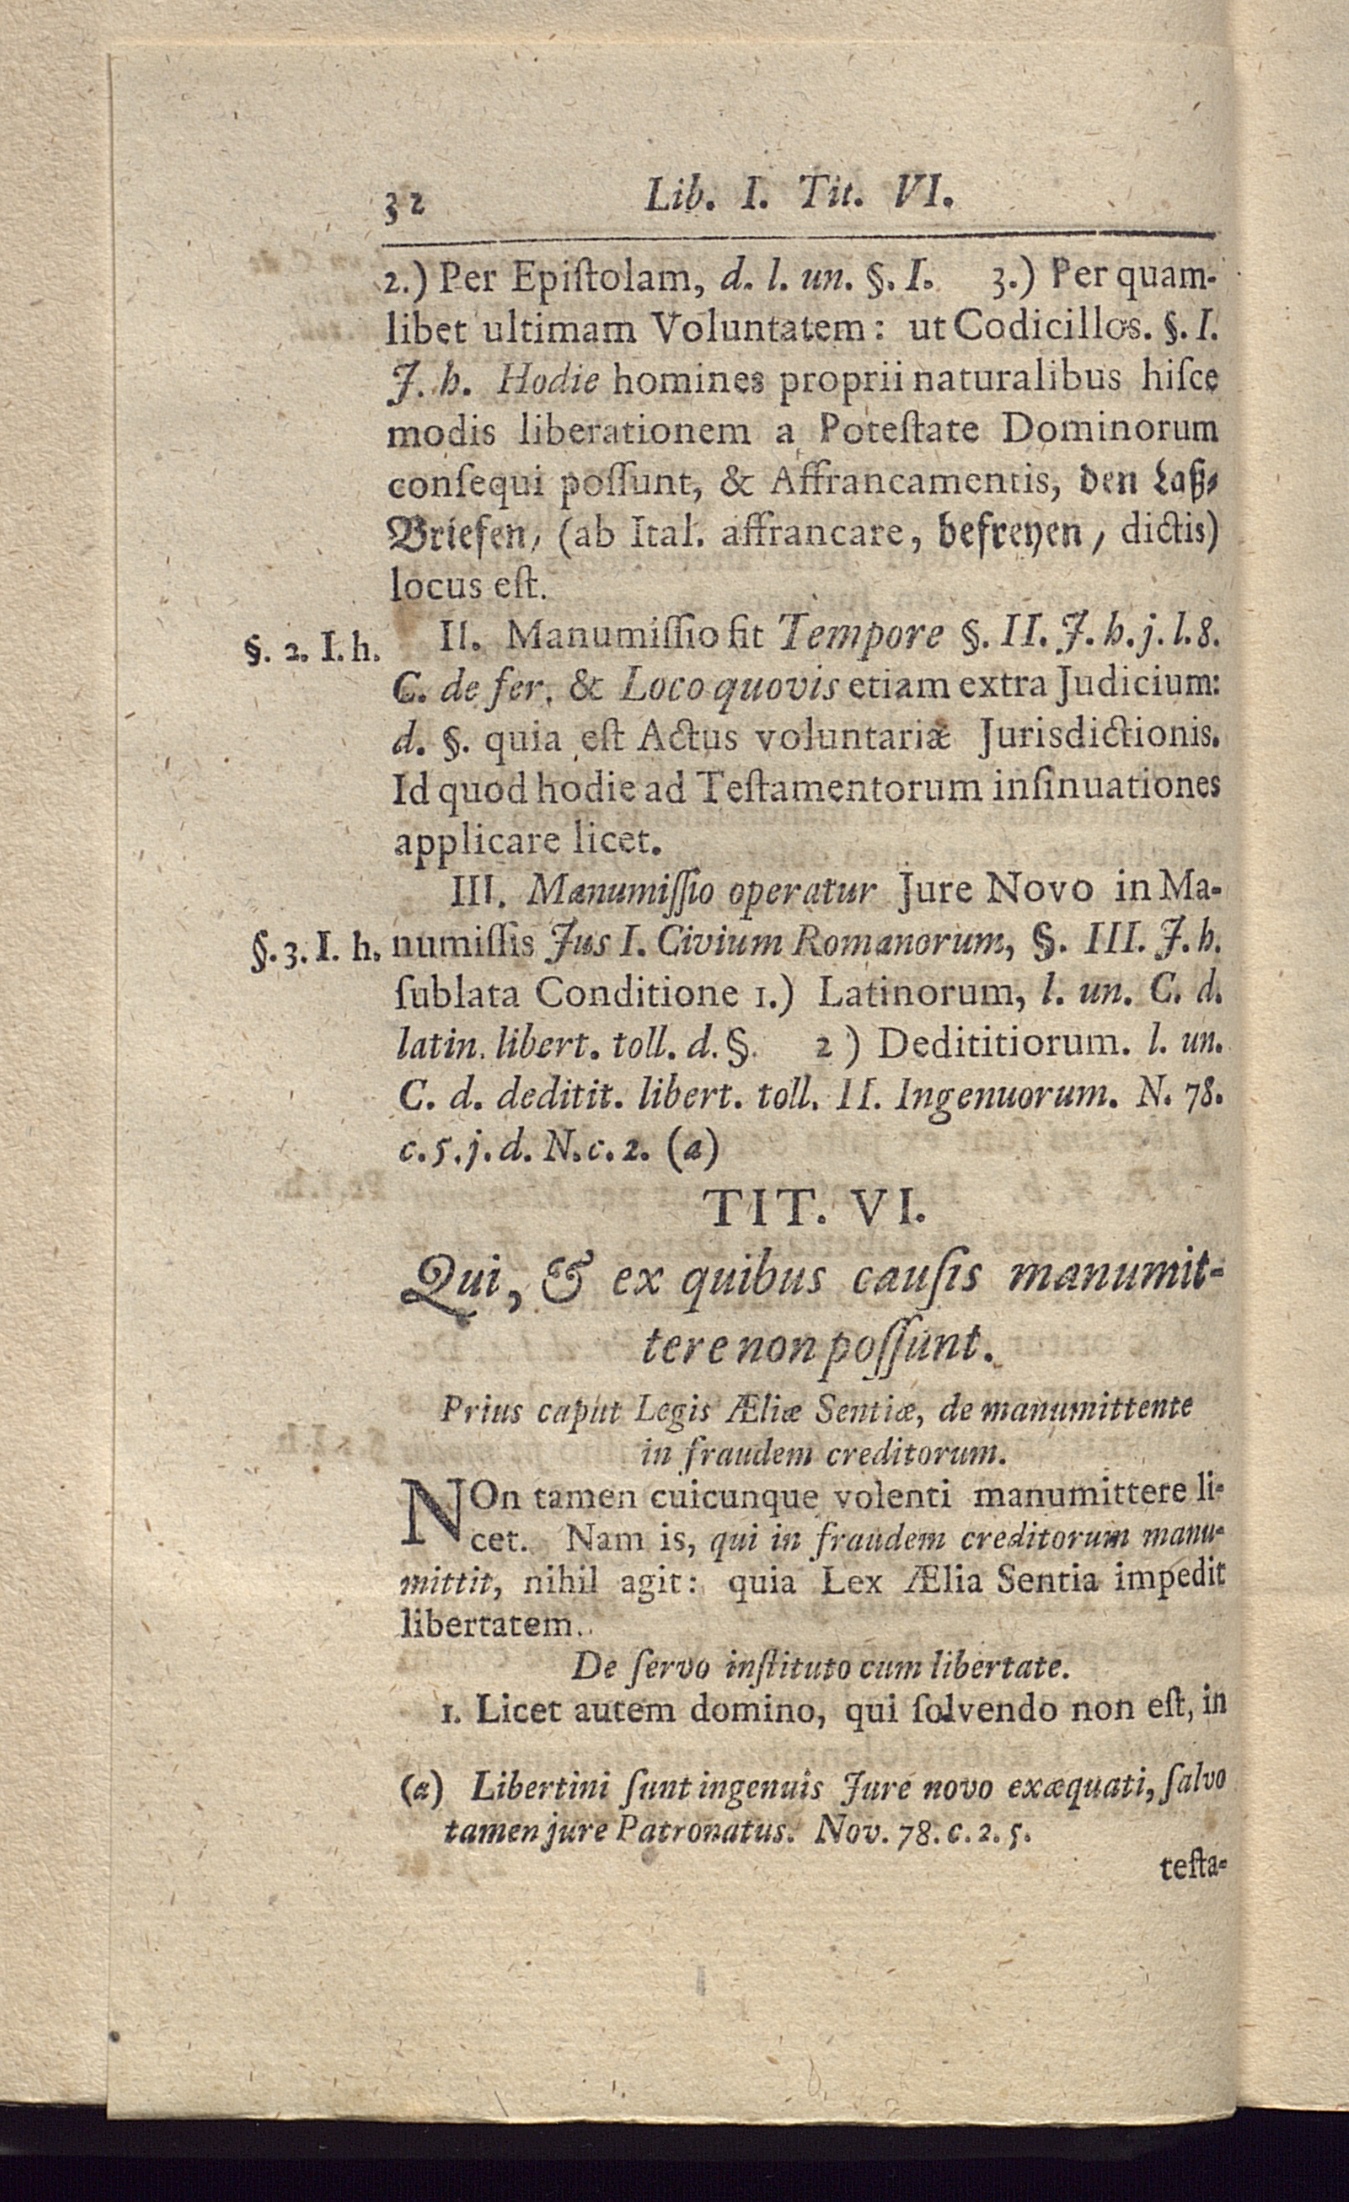 32 Lib. I. Tit. VI.
2.) Per Epiſtolam, d. l. un. §. I. 3.) Per quam-
libet ultimam Voluntatem: ut Codicillos. §. I.
J. h. Hodie homines proprii naturalibus hiſce
modis liberationem a Poteſtate Dominorum
conſequi poſſunt, & Affrancamentis, den Laß-
Briefen, (ab Ital. affrancare, befreyen, dictis)
locus eſt.
§. 2. I. h. II. Manumiſſio fit Tempore §. II. J. h. j. l. 8.
C. de fer. & Loco quovis etiam extra Judicium:
d. §. quia eſt Actus voluntariæ Jurisdictionis.
Id quod hodie ad Teſtamentorum inſinuationes
applicare licet.
III. Manumiſſio operatur Jure Novo in Ma-
§. 3. I. h. numiſſis Jus I. Civium Romanorum, §. III. J. h.
ſublata Conditione 1.) Latinorum, l. un. C. d.
latin. libert. toll. d. §. 2) Dedititiorum. l. un.
C. d. deditit. libert. toll. II. Ingenuorum. N. 78.
c. 5. j. d. N. c. 2. (a)
TIT. VI.
Qui, & ex quibus cauſis manumit-
tere non poſſunt.
Prius caput Legis Æliæ Sentiæ, de manumittente
in fraudem creditorum.
NOn tamen cuicunque volenti manumittere li-
cet. Nam is, qui in fraudem creditorum manu-
mittit, nihil agit: quia Lex Ælia Sentia impedit
libertatem.
De ſervo inſtituto cum libertate.
1. Licet autem domino, qui ſolvendo non eſt, in
(a) Libertini ſunt ingenuis Jure novo exæquati, ſalvo
tamen jure Patronatus. Nov. 78. c. 2. 5.
teſta-